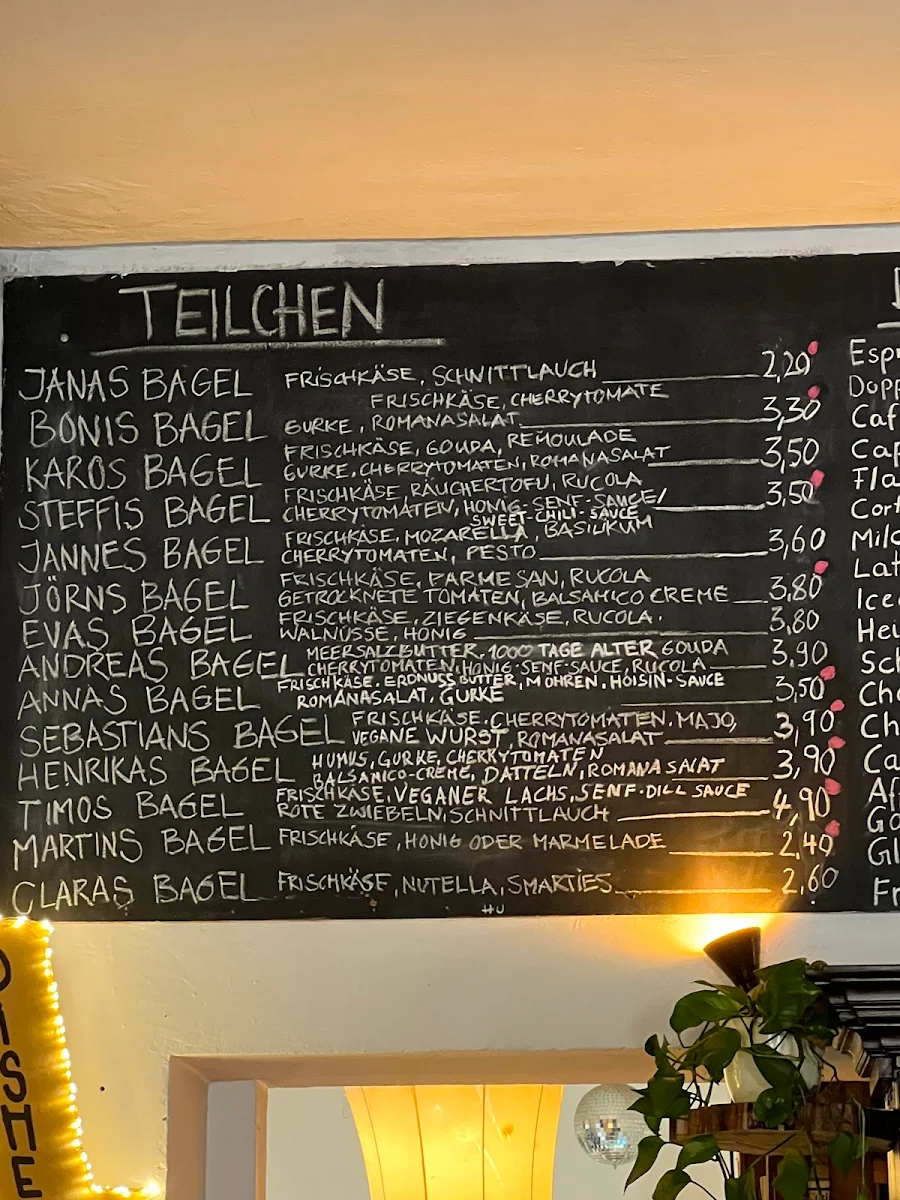 TEILCHEN
JANAS BAGEL FRISCHKÄSE, SCHNITTLAUCH 2,20
FRISCHKÄSE, CHERRYTOMATE
BONIS BAGEL GURKE, ROMANASALAT 3,30
FRISCHKÄSE, GOUDA, REMOULADE
KAROS BAGEL GURKE, CHERRYTOMATEN, ROMANASALAT 3,50
FRISCHKÄSE, RÄUCHERTOFU, RUCOLA
STEFFIS BAGEL CHERRYTOMATEN, HONIG-SENF-SAUCE/ 3,50
SWEET-CHILI-SAUCE
FRISCHKÄSE, MOZARELLA, BASILIKUM
JANNES BAGEL CHERRYTOMATEN, PESTO 3,60
FRISCHKÄSE, PARMESAN, RUCOLA
JÖRNS BAGEL GETROCKNETE TOMATEN, BALSAMICO CREME 3,80
FRISCHKÄSE, ZIEGENKÄSE, RUCOLA,
EVAS BAGEL WALNÜSSE, HONIG 3,80
MEERSALZBUTTER, 1000 TAGE ALTER GOUDA
ANDREAS BAGEL CHERRYTOMATEN, HONIG-SENF-SAUCE, RUCOLA 3,90
FRISCHKÄSE, ERDNUSSBUTTER, MÖHREN, HOISIN-SAUCE
ANNAS BAGEL ROMANASALAT, GURKE 3,50
FRISCHKÄSE, CHERRYTOMATEN, MAJO,
SEBASTIANS BAGEL VEGANE WURST, ROMANASALAT 3,90
HUMUS, GURKE, CHERRYTOMATEN
HENRIKAS BAGEL BALSAMICO-CREME, DATTELN, ROMANASALAT 3,90
FRISCHKÄSE, VEGANER LACHS, SENF-DILL SAUCE
TIMOS BAGEL ROTE ZWIEBELN, SCHNITTLAUCH 4,90
MARTINS BAGEL FRISCHKÄSE, HONIG ODER MARMELADE 2,40
CLARAS BAGEL FRISCHKÄSE, NUTELLA, SMARTIES 2,60